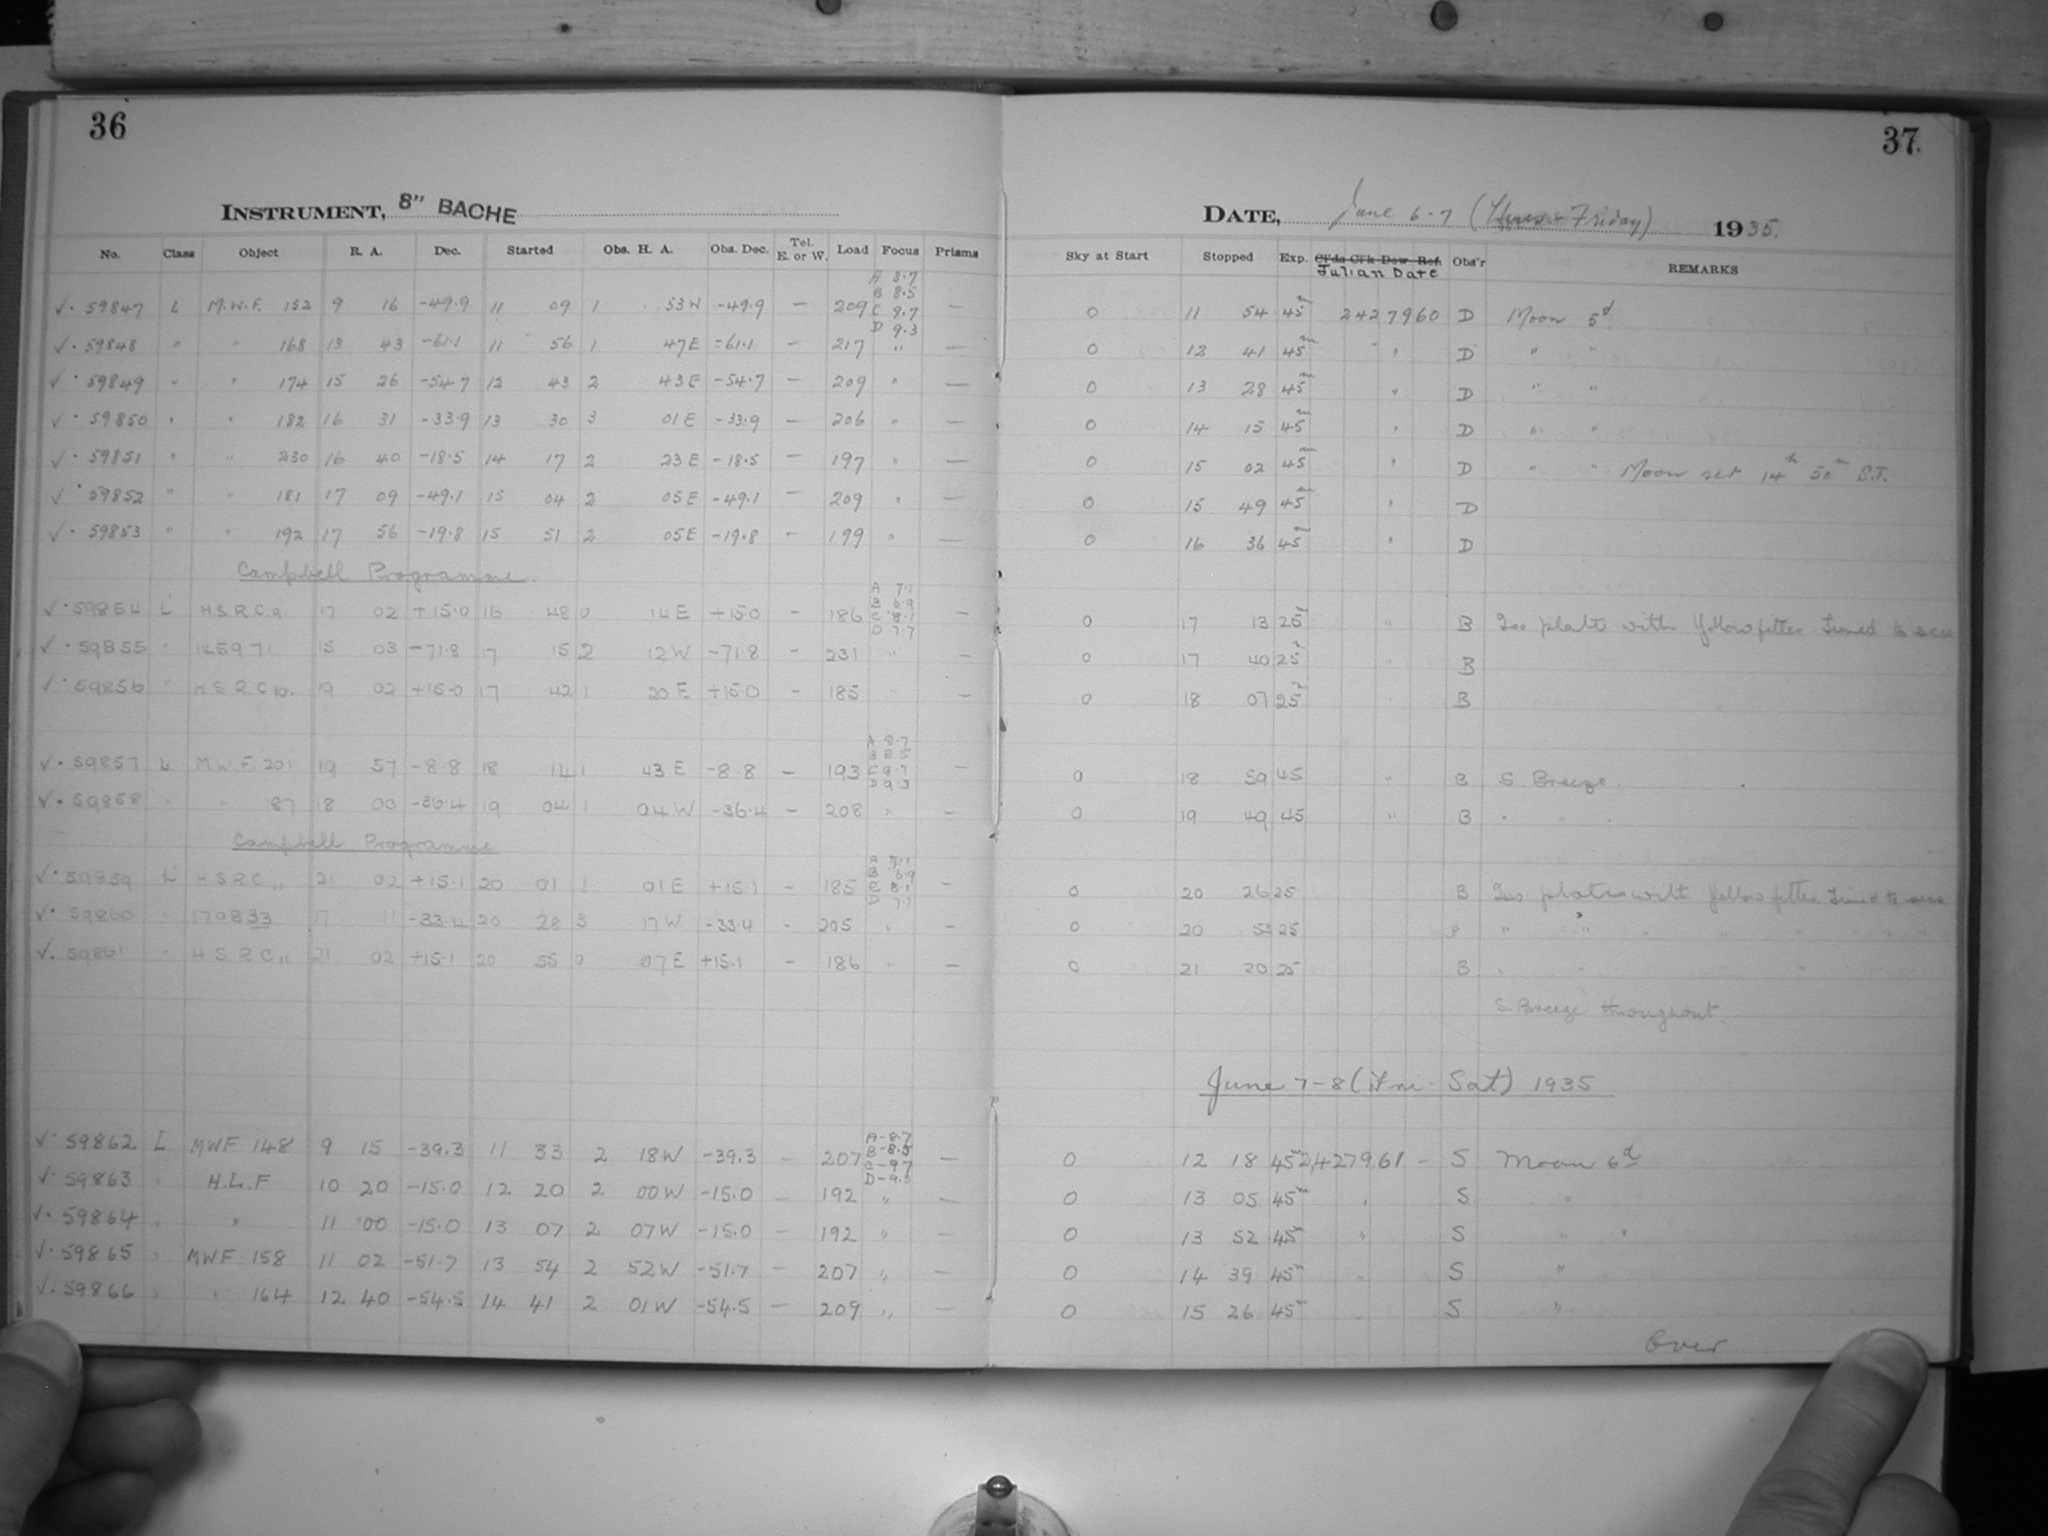 36
INSTRUMENT, 8" BACHE
No. Class Object R. A. Dec. Started Obs. H. A. Obs. Dec. Tel. E. or W. Load Focus Prisms
A 8.7
B 8.5
✓· 59847 L M.W.F. 152 9 16 -49.9 11 09 1 53W -49.9 — 209 C 9.7 —
D 9.3
✓· 59848 " " 168 13 43 -61.1 11 56 1 47E -61.1 — 217 " —
✓· 59849 " " 174 15 26 -54.7 12 43 2 43E -54.7 — 209 " —
✓· 59850 " " 182 16 31 -33.9 13 30 3 01E -33.9 — 206 " —
✓· 59851 " " 230 16 40 -18.5 14 17 2 23E -18.5 — 197 " —
✓· 59852 " " 181 17 09 -49.1 15 04 2 05E -49.1 — 209 " —
✓· 59853 " " 192 17 56 -19.8 15 51 2 05E -19.8 — 199 " —
Campbell Programme.
A 7.1
B 6.9
✓· 59854 L H.S.R.C.9. 17 02 +15.0 16 48 0 14E +15.0 - 186 C 8.1 —
D 7.7
✓· 59855 " 145971 15 03 -71.8 17 15 2 12W -71.8 - 231 " —
✓· 59856 " H.S.R.C.10. 19 02 +15.0 17 42 1 20E +15.0 - 185 " —
A 8.7
B 8.5
✓· 59857 L M.W.F. 201 19 57 -8.8 18 14 1 43E -8.8 — 193 C 9.7 —
D 9.3
✓· 59858 " " 187 18 00 -36.4 19 04 1 04W -36.4 — 208 " —
Campbell Programme
A 7.1
B 6.9
✓· 59859 L H.S.R.C.11 21 02 +15.1 20 01 1 01E +15.1 - 185 C 8.1 —
D 7.7
✓· 59860 " 170833 17 11 -33.4 20 28 3 17W -33.4 - 205 " —
✓· 59861 " H.S.R.C.11 21 02 +15.1 20 55 0 07E +15.1 - 186 " —
A-8.7
✓· 59862 L MWF 148 9 15 -39.3 11 33 2 18W -39.3 — 207 B-8.5 —
C-9.7
D-9.3
✓· 59863 " H.L.F 10 20 -15.0 12 20 2 00W -15.0 — 192 " —
✓· 59864 " " 11 00 -15.0 13 07 2 07W -15.0 — 192 " —
✓· 59865 " MWF 158 11 02 -51.7 13 54 2 52W -51.7 — 207 " —
✓· 59866 " " 164 12 40 -54.5 14 41 2 01W -54.5 — 209 " —
37
DATE, June 6-7 (Thurs + Friday) 1935.
Sky at Start Stopped Exp. Cl'ds Cl'k Dew Ref. Julian Date Obs'r REMARKS
0 11 54 45m 2427960 D Moon 5d
0 12 41 45m " " D " "
0 13 28 45m " D " "
0 14 15 45m " D " "
0 15 02 45m " D " " Moon set 14h 50m S.T.
0 15 49 45m " D
0 16 36 45m " D
0 17 13 25m " B Iso plate with Yellow filter. Timed
0 17 40 25m " B
0 18 07 25m " B
0 18 59 45 " B S Breeze.
0 19 49 45 " B " " "
0 20 26 25 B Iso plates with Yellow filter. Timed to
0 20 53 25 B " " " " "
0 21 20 25 B " " "
S. Breeze throughout.
June 7-8 (Fri - Sat) 1935
0 12 18 45m 2,427961 - S Moon 6d
0 13 05 45m " S "
0 13 52 45m " S " "
0 14 39 45m " S "
0 15 26 45m " S "
Over